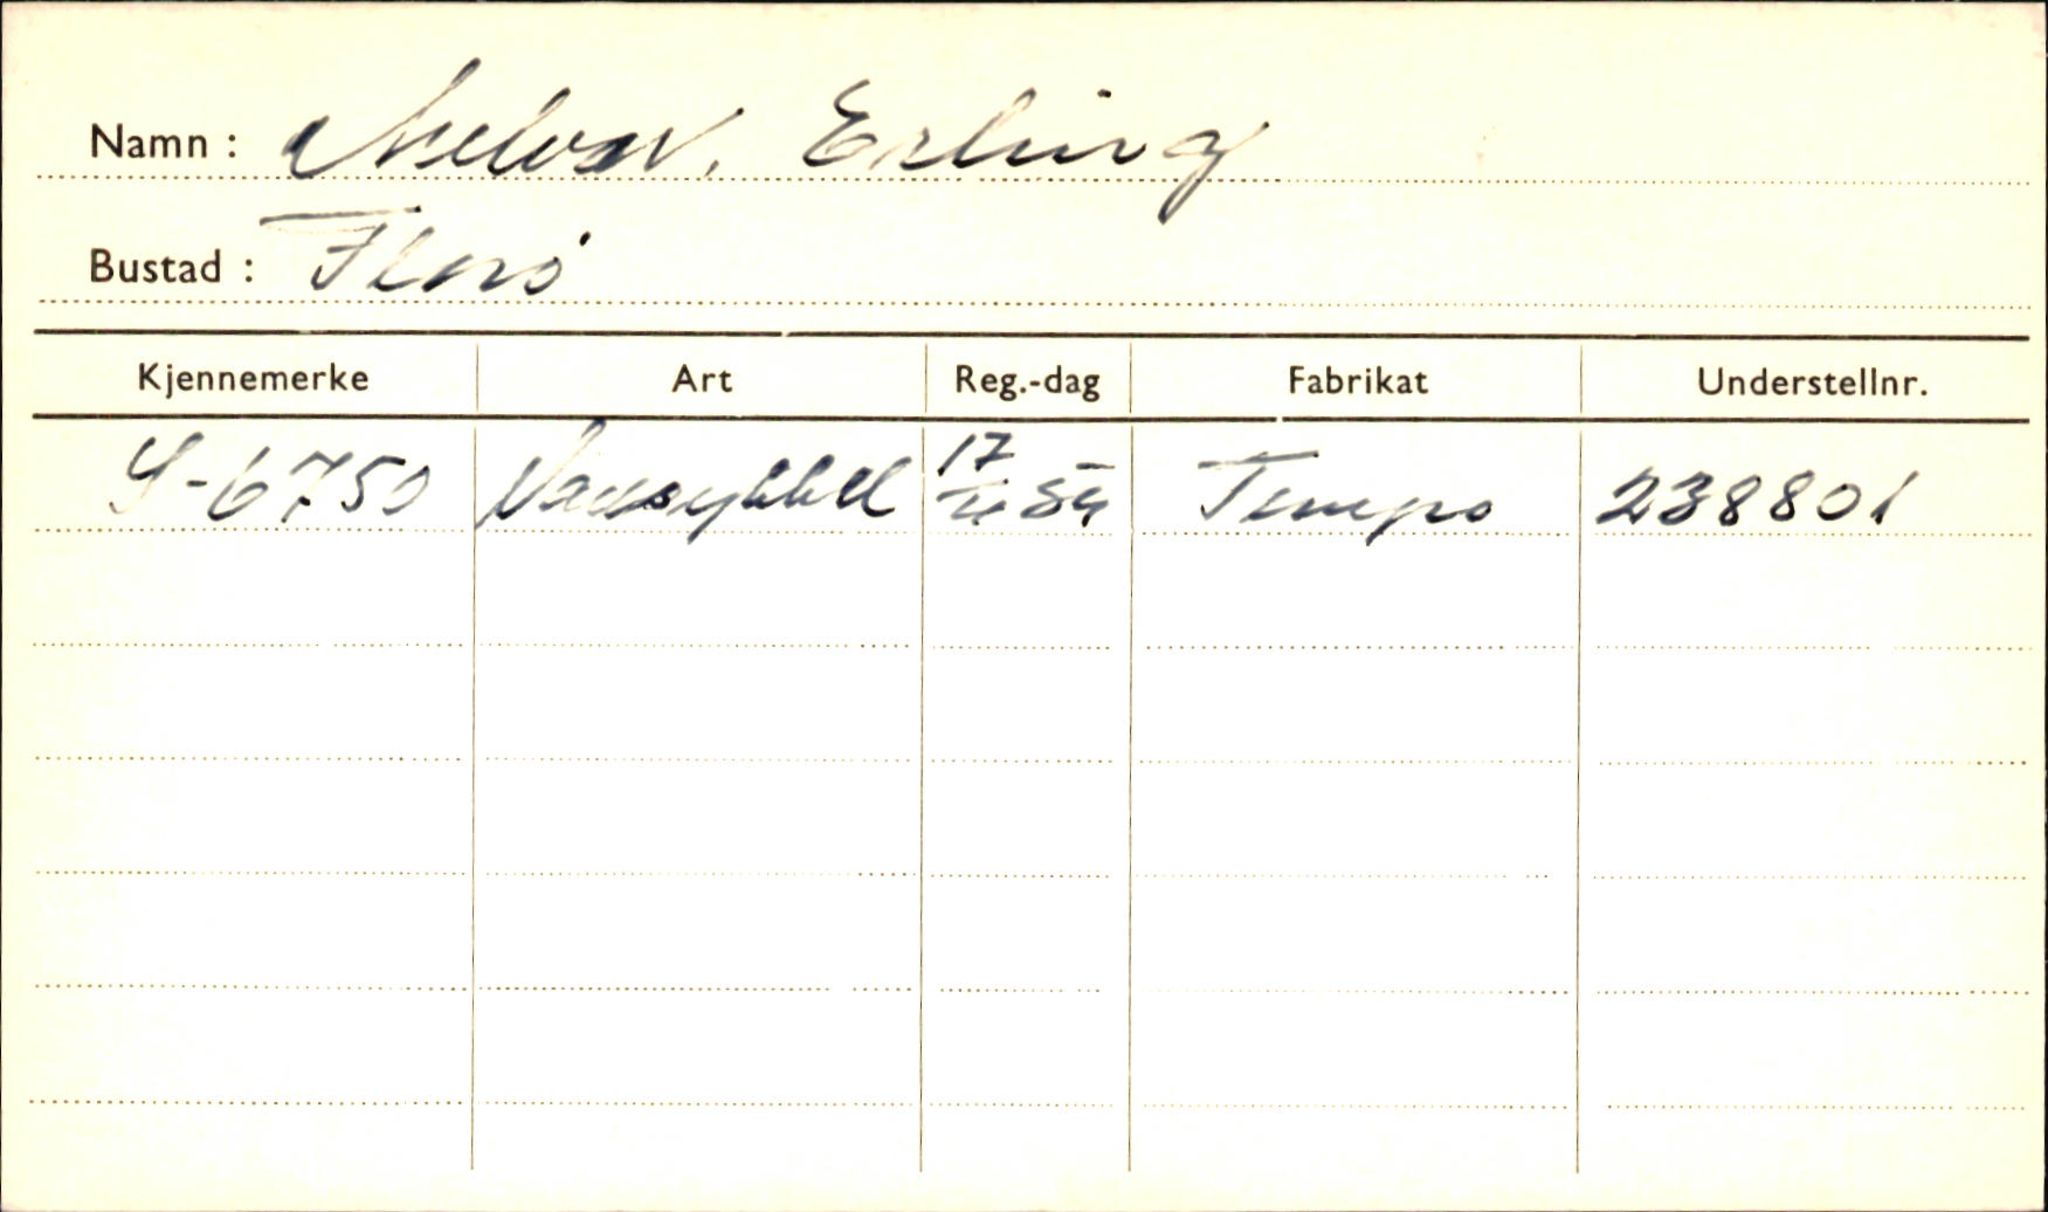 Namn: Melvær, Erling
Bustad: Florø
Kjennemerke Art Reg.-dag Fabrikat Understellnr.
S-6750 Varesykkel 17/11 54 Tempo 238801